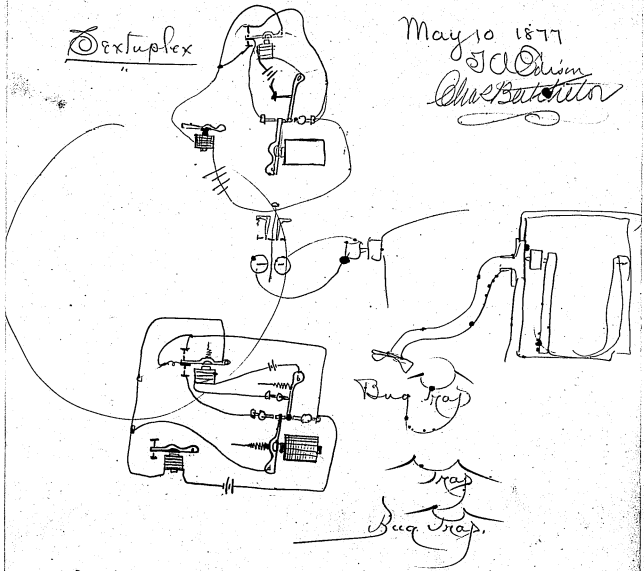 Sextuplex
May 10 1877
T A Edison
Chas Batchelor
Bug Trap
Trap
Bug Trap.